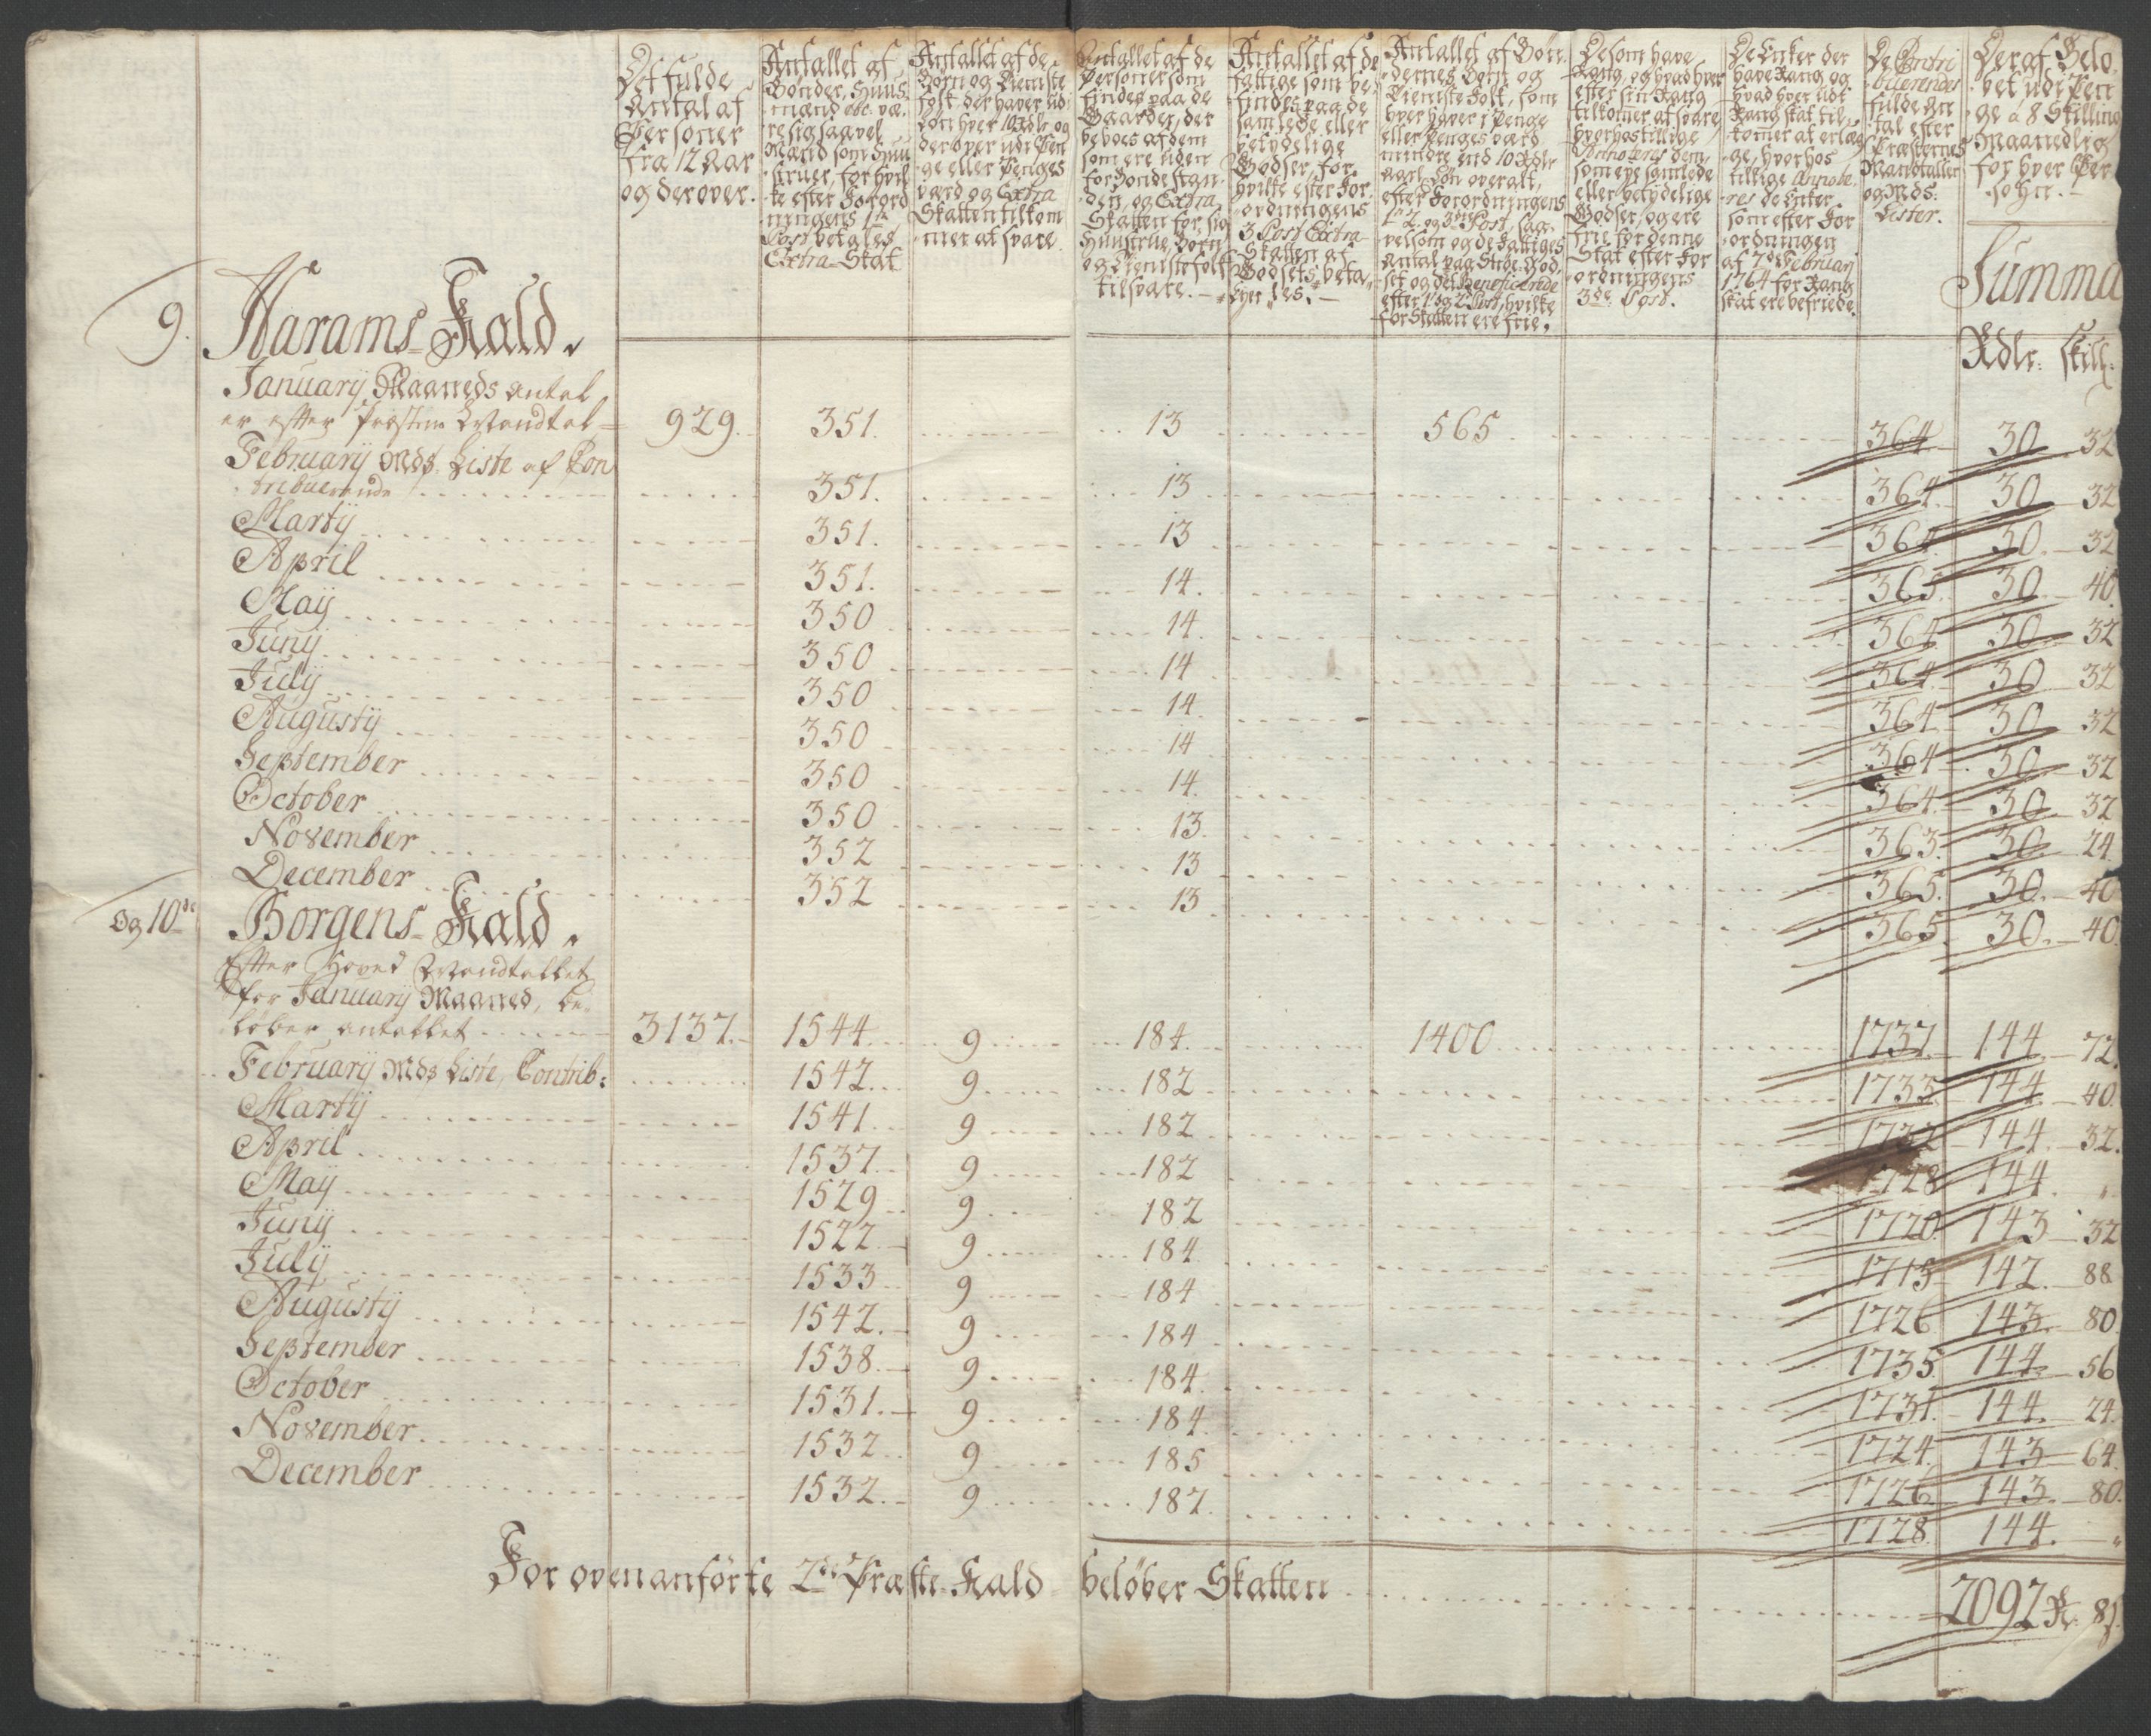 Det fulde
Antal af
Personer
fra 12 Aar
og derover.
Antallet af
Bønder, Huus-
mænd etc. væ-
re sig saavel
Mænd som Huu-
struer, for hvil-
ke efter Forord-
ningens 1te
Post betales
Extra-Skat
Antallet af de
Børn og Tieniste
folk, der haver ud-
løn hver 10 Rdlr og
derover udi Pen-
ge eller Penges
værd og Extra
Skatten tilkom-
mer at svare.
Antallet af de
Personer som
findes paa de
Gaarder, der
beboes af dem
som ere uden
for Bondestan-
den, og Extra
Skatten for sig
Huustrue, Børn
og Tienistefolk
tilsvare.
Antallet af de
fattige som be-
findes paa de
samlede eller
betydelige
Godser, for
hvilke efter For-
ordningens
3 Post Extra
Skatten af
Godsets beta-
les.
Antallet af Bøn-
dernes Børn og
Tieniste Folk, som
hver hver i Penge
eller Penges værd
mindre end 10 Rdlr
aarl. Løn overalt,
efter Forordningens
1. 2. og 3die Post, saa-
velsom og de fattiges
Antal paa Strøe-God-
set og det Beneficerede
efter 1 og 2 Post, hvilke
for Skatten ere frie.
De som have
Rang, og hvad hver
efter sin Rang
tilkomer at svare,
hvorhos tillige
Annoteres dem,
som eye samlede
eller betydelige
Godser, og ere
frie for denne
Skat efter For-
ordningens
3de Post.
De Enker der
have Rang og
hvad hver udi
Rang skat til-
komer at erlæg-
ge, hvorhos
tillige Annote-
res de Enker,
som efter For-
ordningen
af 7de Februarij
1764 for Rang
skat ere befriede.
De Contri
buerendes
fulde An
tal efter
Præsternes
Mandtaller
og Mds:
Lister.
Deraf Belø-
bet udi Pen
ge a 8 Skilling
Maanedlig
for hver Per-
sohn.
Summa
Rdlr: skill:
9. Harams-Kald.
January Maaneds antal
er efter Præstens Mandtal 929. 351. 13 565 364 30 32
February Mds. Liste af Con
tribuerende 351. 13 364. 30 32
Martij 351. 13 364 30. 32
April 351. 14. 365. 30. 40.
Maij 350 14. 364 30. 32
Junij 350 14 364 30 32
Julij 350 14. 364 30 32
Augustij 350 14 364 30 32
September 350 14. 364. 30. 32
October 350 13. 363. 30. 24.
November 352 13 365. 30. 40
December 352 13 365. 30. 40.
Og 10de Borgens-Kald.
Efter Hoved Mandtallet
for January Maaned, be-
løber antallet 3137. 1544. 9 184. 1400 1737. 144. 72.
February Mds Liste, Contrib: 1542. 9 182 1733. 144. 40.
Martij 1541. 9 182 1732 144. 32.
April 1537. 9 182 1728 144. "
Maij 1529 9 182 1720. 143 32
Junij 1522 9 184 1715 142. 88
Julij 1533 9 184 1726 143. 80.
Augustij 1542. 9 184 1735. 144. 56
September 1538. 9 184. 1731. 144. 24.
October 1531. 9 184 1724. 143 64.
November 1532 9 185 1726. 143. 80.
December 1532. 9 187. 1728. 144. "
For ovenanførte 2de Præste-Kald beløber Skatten 2092 Rd. 8 s.